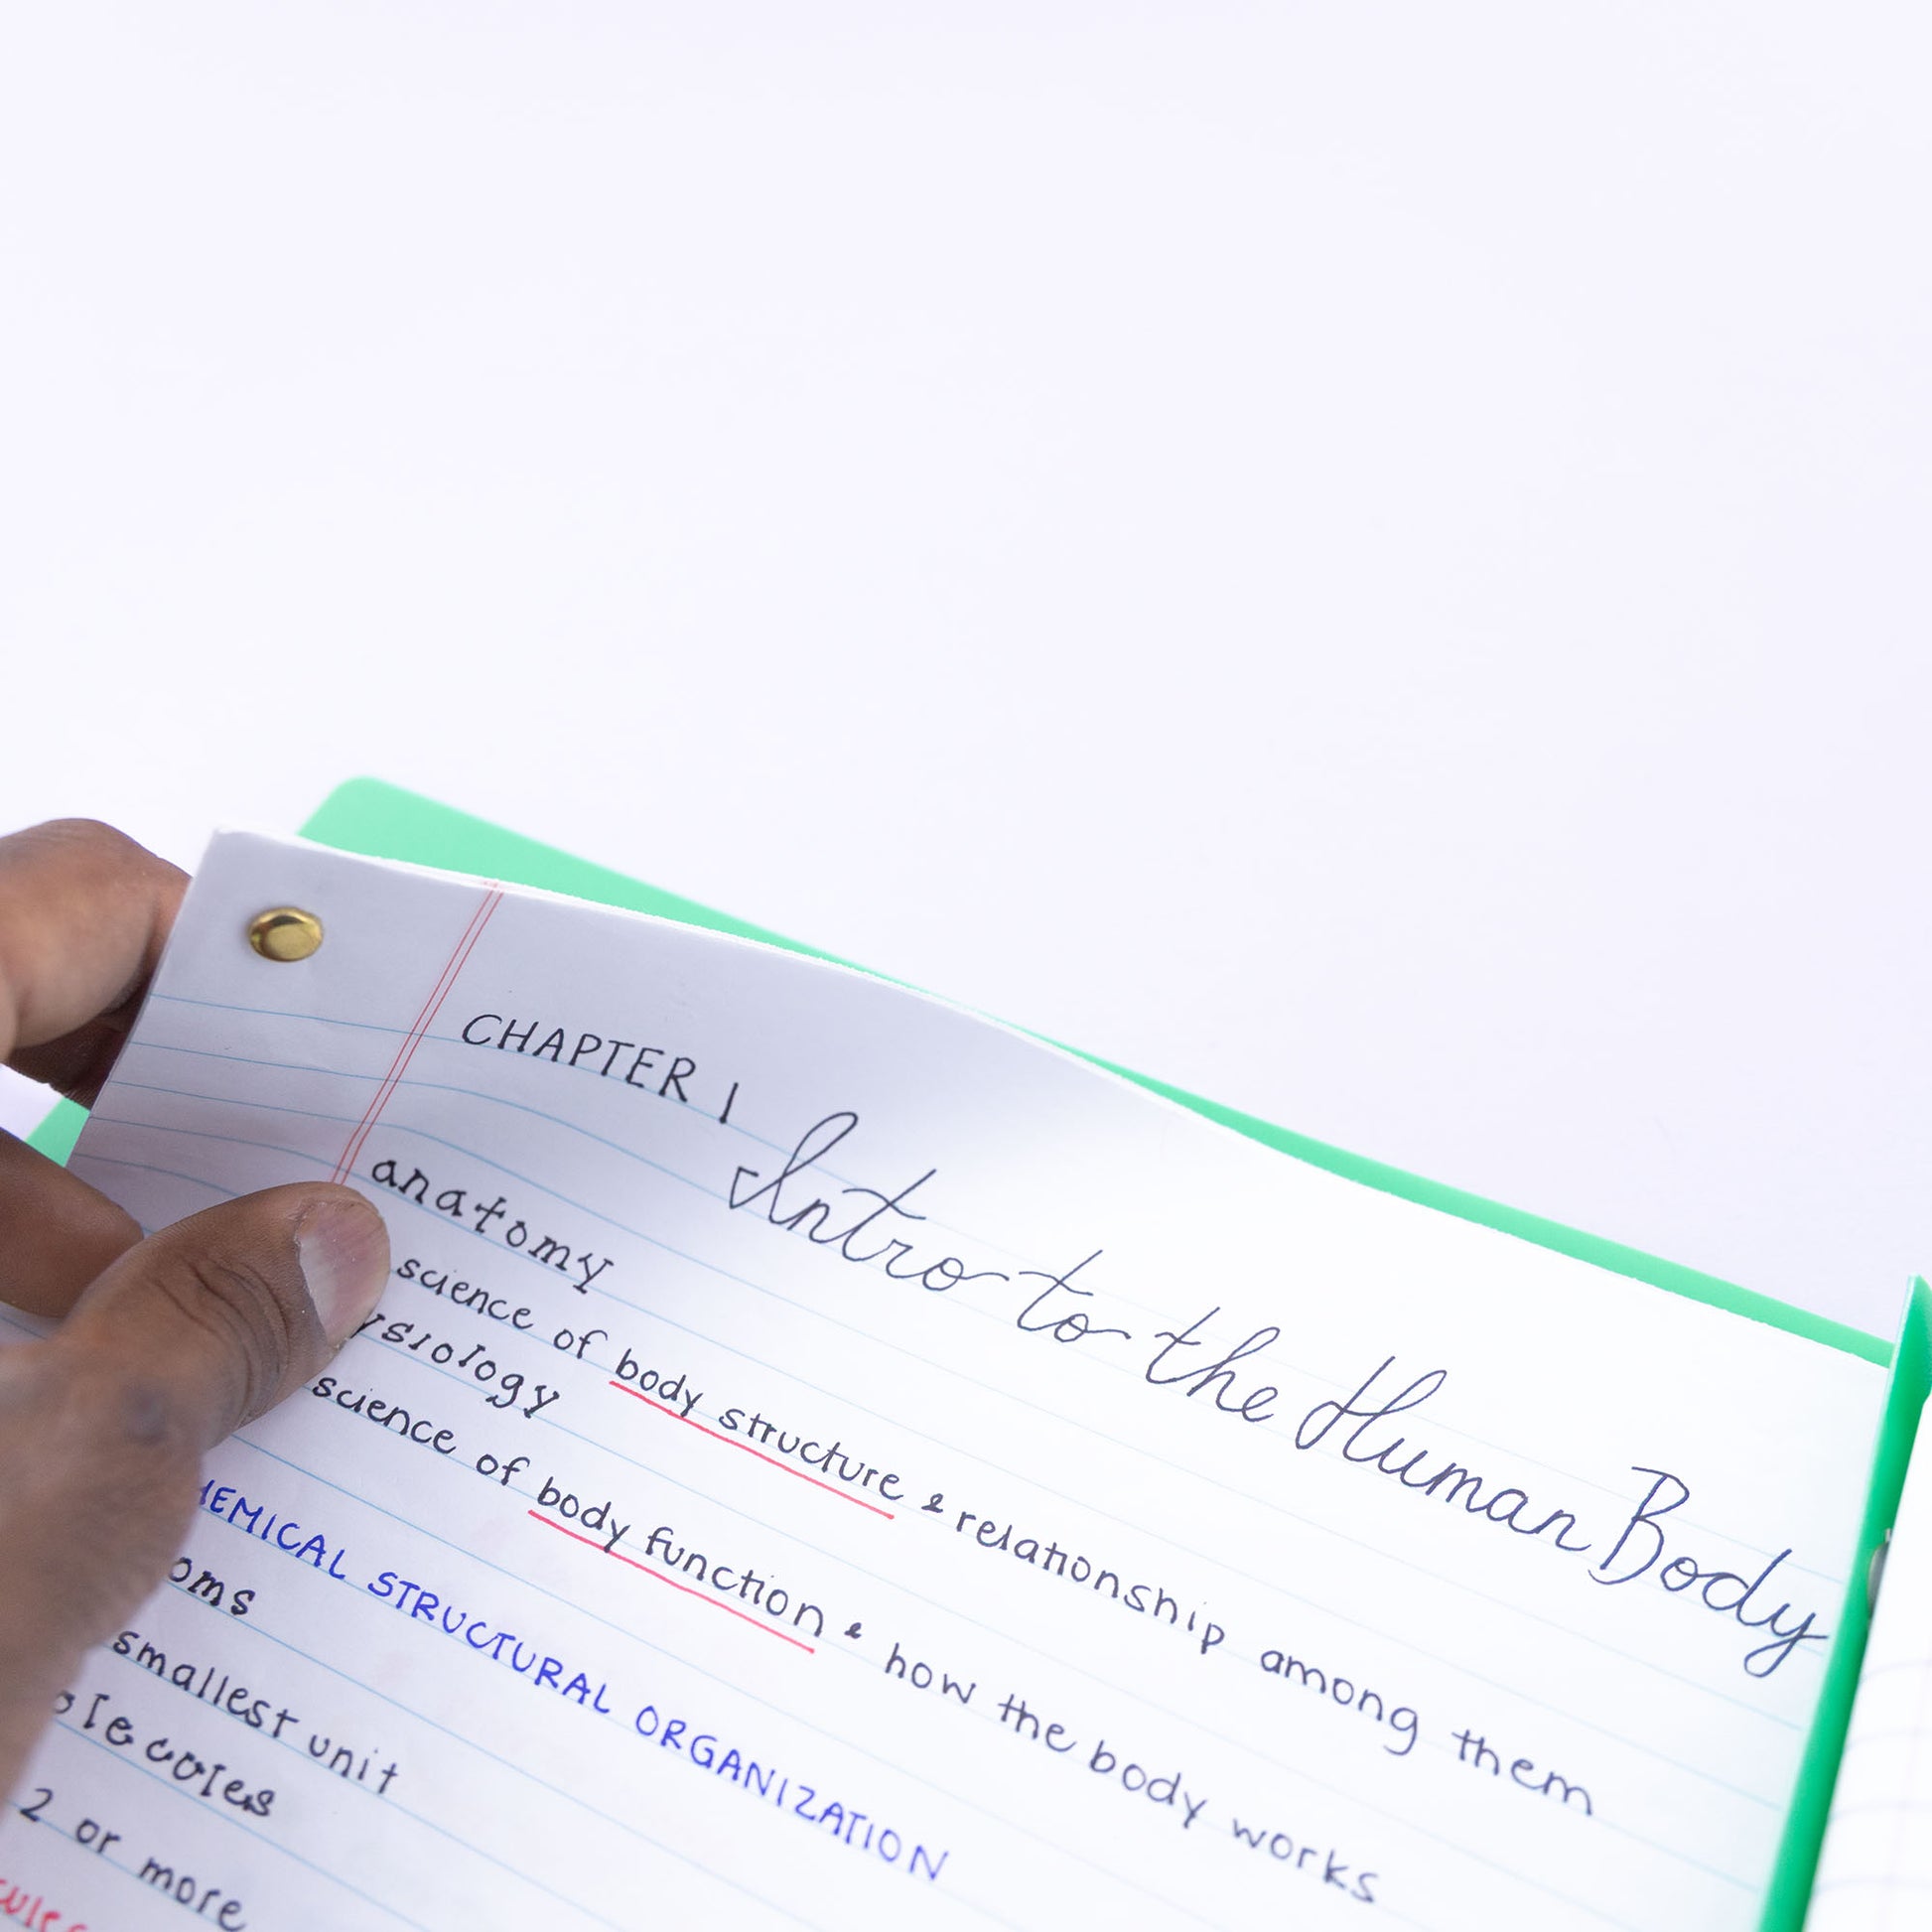 CHAPTER 1
Intro to the Human Body
anatomy
science of body structure & relationship among them
ysiology
science of body function & how the body works
HEMICAL STRUCTURAL ORGANIZATION
oms
smallest unit
olecules
2 or more